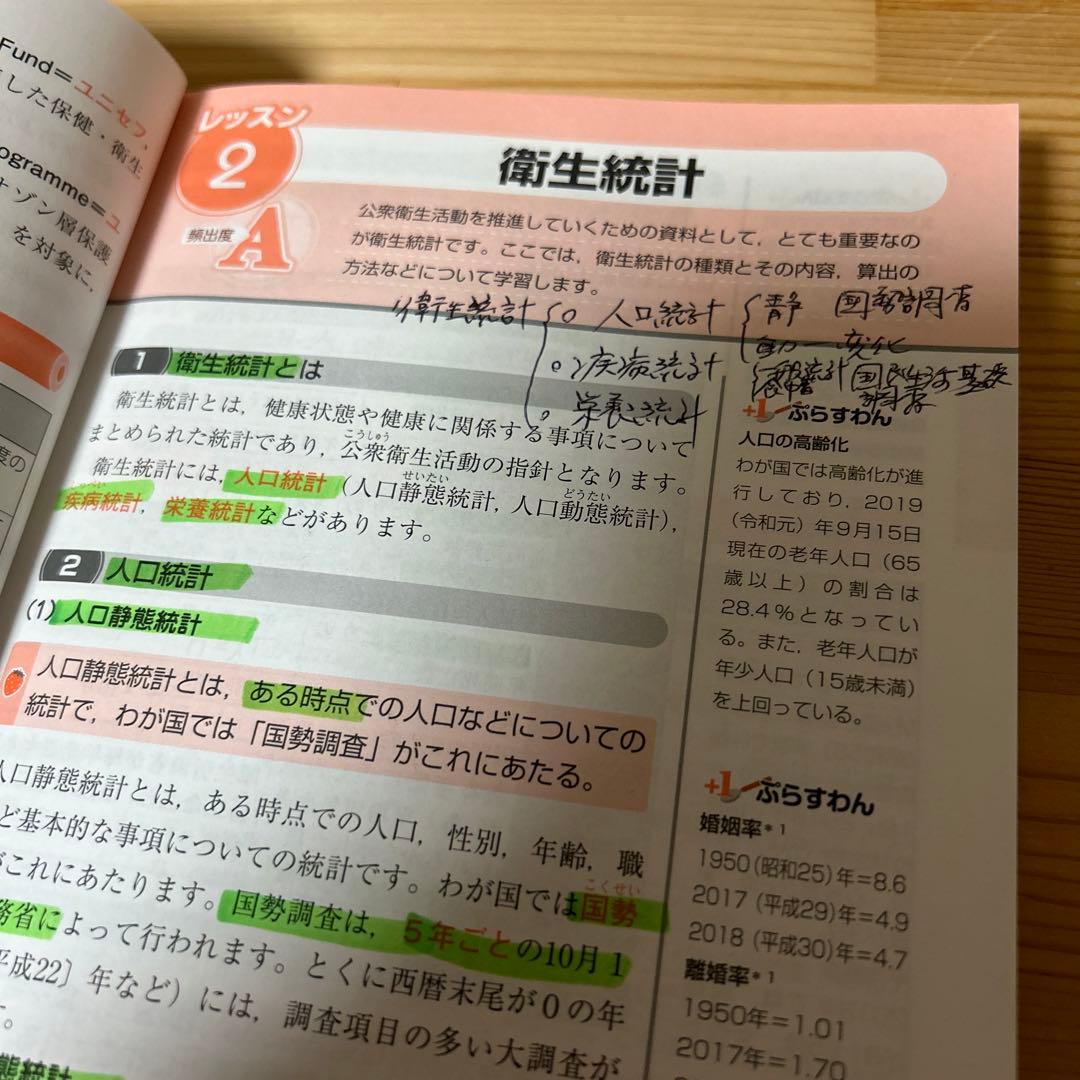 Fund=ユニセフ,
した保健・衛生
ogramme=ユ
ゾン層保護
を対象に,
レッスン
2
頻出度
A
衛生統計
公衆衛生活動を推進していくための資料として,とても重要なの
が衛生統計です。ここでは,衛生統計の種類とその内容,算出の
方法などについて学習します。
衛生統計 人口統計 静 国勢調査
動 変化
疾病統計 国民生活基礎
調査
栄養統計
1 衛生統計とは
衛生統計とは,健康状態や健康に関係する事項について
こうしゅう
まとめられた統計であり,公衆衛生活動の指針となります。
せいたい どうたい
衛生統計には,人口統計(人口静態統計,人口動態統計),
疾病統計,栄養統計などがあります。
2 人口統計
(1)人口静態統計
人口静態統計とは,ある時点での人口などについての
統計で,わが国では「国勢調査」がこれにあたる。
人口静態統計とは,ある時点での人口,性別,年齢,職
ど基本的な事項についての統計です。わが国では国勢
こくせい
がこれにあたります。国勢調査は,5年ごとの10月1
務省によって行われます。とくに西暦末尾が0の年
平成22〕年など)には,調査項目の多い大調査が
す。
態統計
度の
+1 ぷらすわん
人口の高齢化
わが国では高齢化が進
行しており,2019
(令和元)年9月15日
現在の老年人口(65
歳以上)の割合は
28.4%となってい
る。また,老年人口が
年少人口(15歳未満)
を上回っている。
+1 ぷらすわん
婚姻率*1
1950(昭和25)年=8.6
2017(平成29)年=4.9
2018(平成30)年=4.7
離婚率*1
1950年=1.01
2017年=1.70